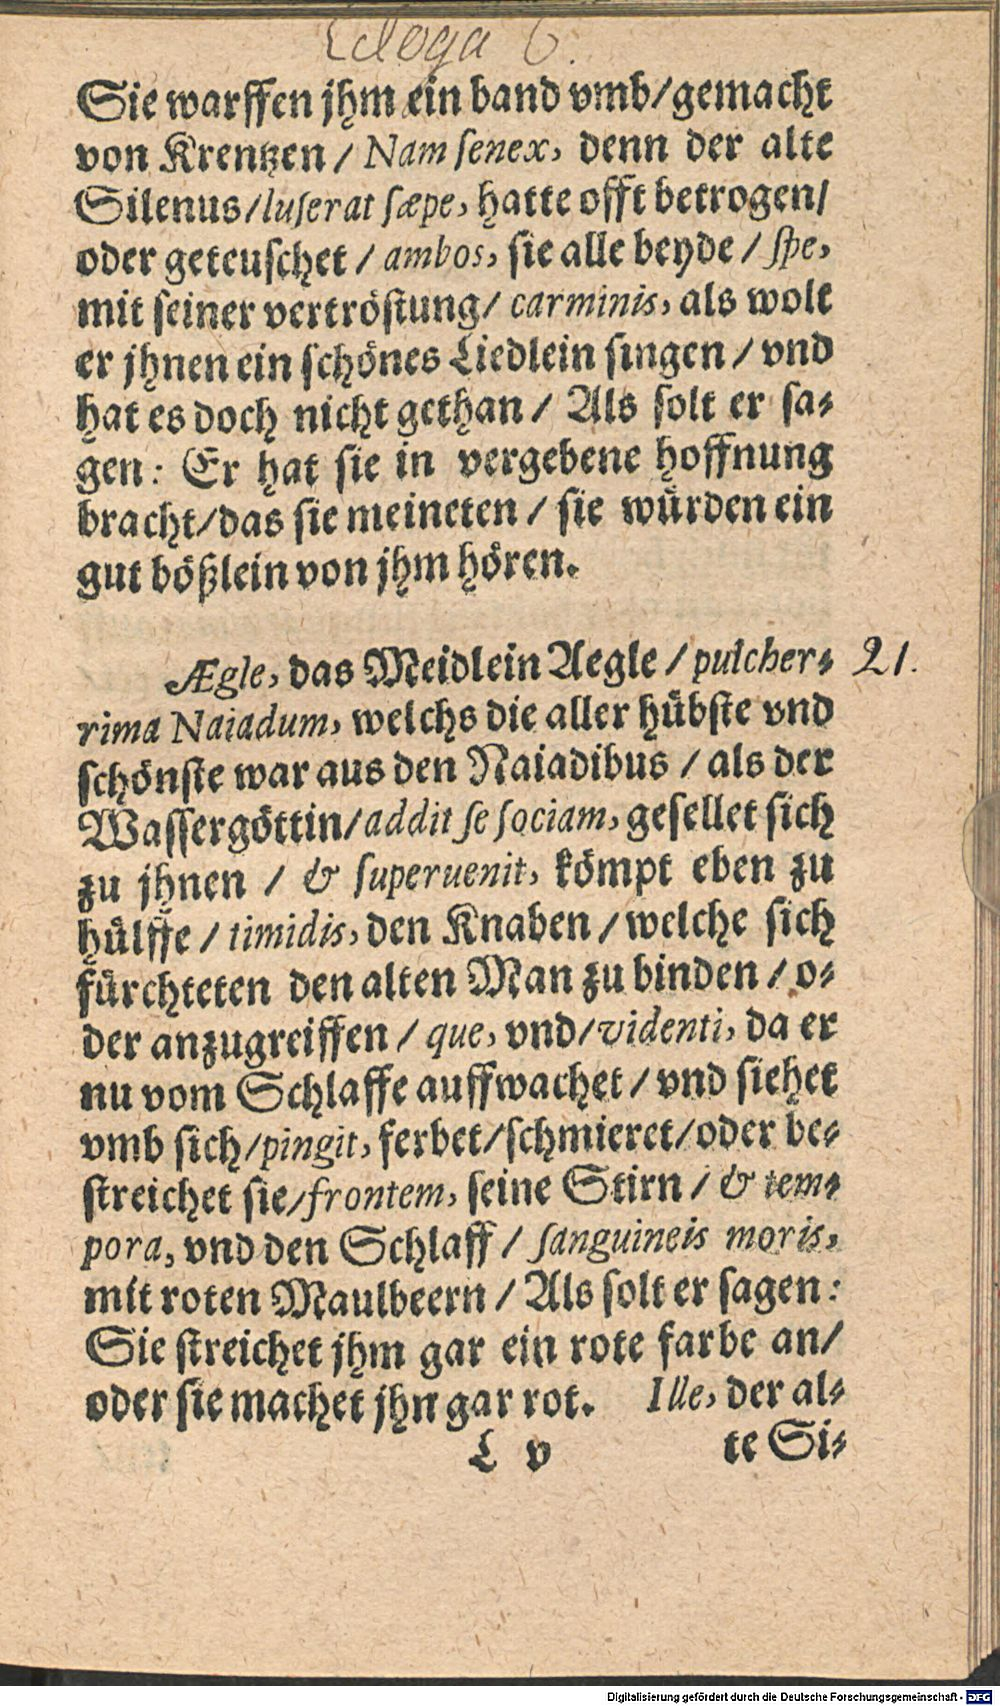 Ecloga 6.
Sie warffen jhm ein band vmb/gemacht
von Krentzen / Nam senex, denn der alte
Silenus/luserat sæpe, hatte offt betrogen/
oder geteuschet / ambos, sie alle beyde / spe,
mit seiner vertröstung/ carminis, als wolt
er jhnen ein schönes Liedlein singen / vnd
hat es doch nicht gethan / Als solt er sa-
gen: Er hat sie in vergebene hoffnung
bracht/das sie meineten / sie würden ein
gut bößlein von jhm hören.
Ægle, das Meidlein Aegle / pulcher- 21.
rima Naiadum, welchs die aller hübste vnd
schönste war aus den Naiadibus / als der
Wassergöttin/addit se sociam, gesellet sich
zu jhnen / & superuenit, kömpt eben zu
hülffe / timidis, den Knaben / welche sich
fürchteten den alten Man zu binden / o-
der anzugreiffen / que, vnd/videnti, da er
nu vom Schlaffe auffwachet / vnd siehet
vmb sich/pingit, ferbet/schmieret/oder be-
streichet sie/frontem, seine Stirn / & tem-
pora, vnd den Schlaff / sanguineis moris,
mit roten Maulbeern / Als solt er sagen:
Sie streichet jhm gar ein rote farbe an/
oder sie machet jhn gar rot. Ille, der al-
L v te Si-
Digitalisierung gefördert durch die Deutsche Forschungsgemeinschaft - DFG